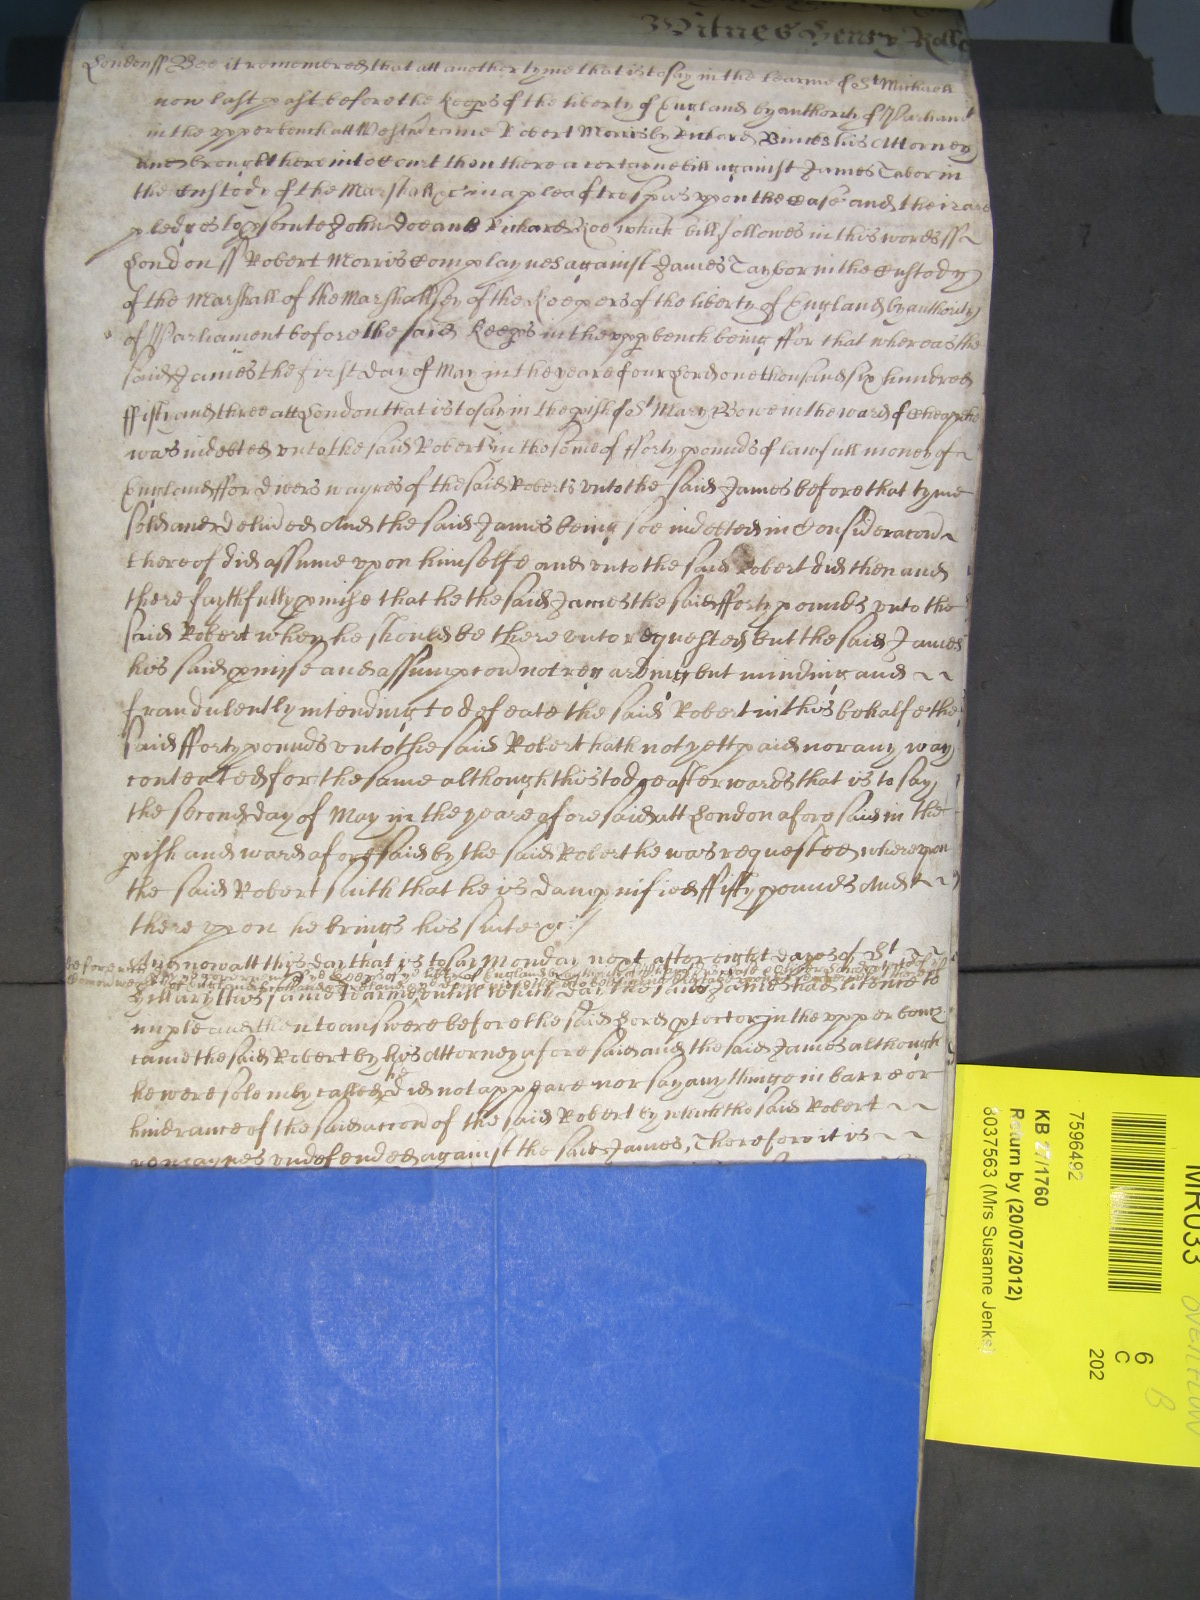 Witnes Henry Rolle
London ss Bee it remembred that att another tyme that is to say in the tearme of St Michaell
now last past before the Keeps of the liberty of England by authority of Parliamt
in the upper bench att Westmr came Robert Morris by Richard Bines his Attorney
and brought here into Court then there a certayne bill against James Tabor in
the Custody of the Marshall &c in a plea of trespas upon the Case and there are
pledges to psecute John Doe and Richard Roe which bill followes in this words ss
London ss Robert Morris Complaynes against James Taybor in the Custody
of the Marshall of the Marshallsey of the Keepers of the liberty of England by authority
of Parliament before the said Keeps in the uppr bench being ffor that whereas the
said James the first day of May in the yeare of our Lord one thousand six hundred
ffifty and three att London that is to say in the pish of St Mary Bowe in the ward of Cheape
was indebted unto the said Robert in the some of fforty pounds of lawfull money of
England ffor divers wayres of the said Roberts unto the said James before that tyme
sold and delivded And the said James being soe indebted in Consideracon
thereof did assume upon himselfe and unto the said Robert did then and
there faythfully pmise that he the said James the said fforty pounds unto the
said Robert when he should be there unto requested but the said James
his said pmise and assumpcon not regarding but minding and
fraudulently intending to defeate the said Robert in this behalfe the
said fforty pounds unto the said Robert hath not yett paid nor any way
contented for the same although this to doe afterwards that is to say
the second day of May in the yeare aforesaid att London aforesaid in the
pish and ward aforesaid by the said Robert he was requested whereupon
the said Robert saith that he is dampnified ffifty pounds And
there upon he brings his suite &c
And now att this day that is to say Monday next after eight dayes of St
Hillary this same tearme untill which day the said James had licence to
imple and then to answere before the said Lord ptector in the upper bench
came the said Robert by his Attorney aforesaid and the said James although
he were solemly called did not appeare nor say any thinge in barre or
hindrance of the said accon of the said Robert by which the said Robert
remaynes undefended against the said James, Therefore it is
MR033
OVERFLOW
B
6
C
202
7596492
KB 27/1760
Return by (20/07/2012)
6037563 (Mrs Susanne Jenks)